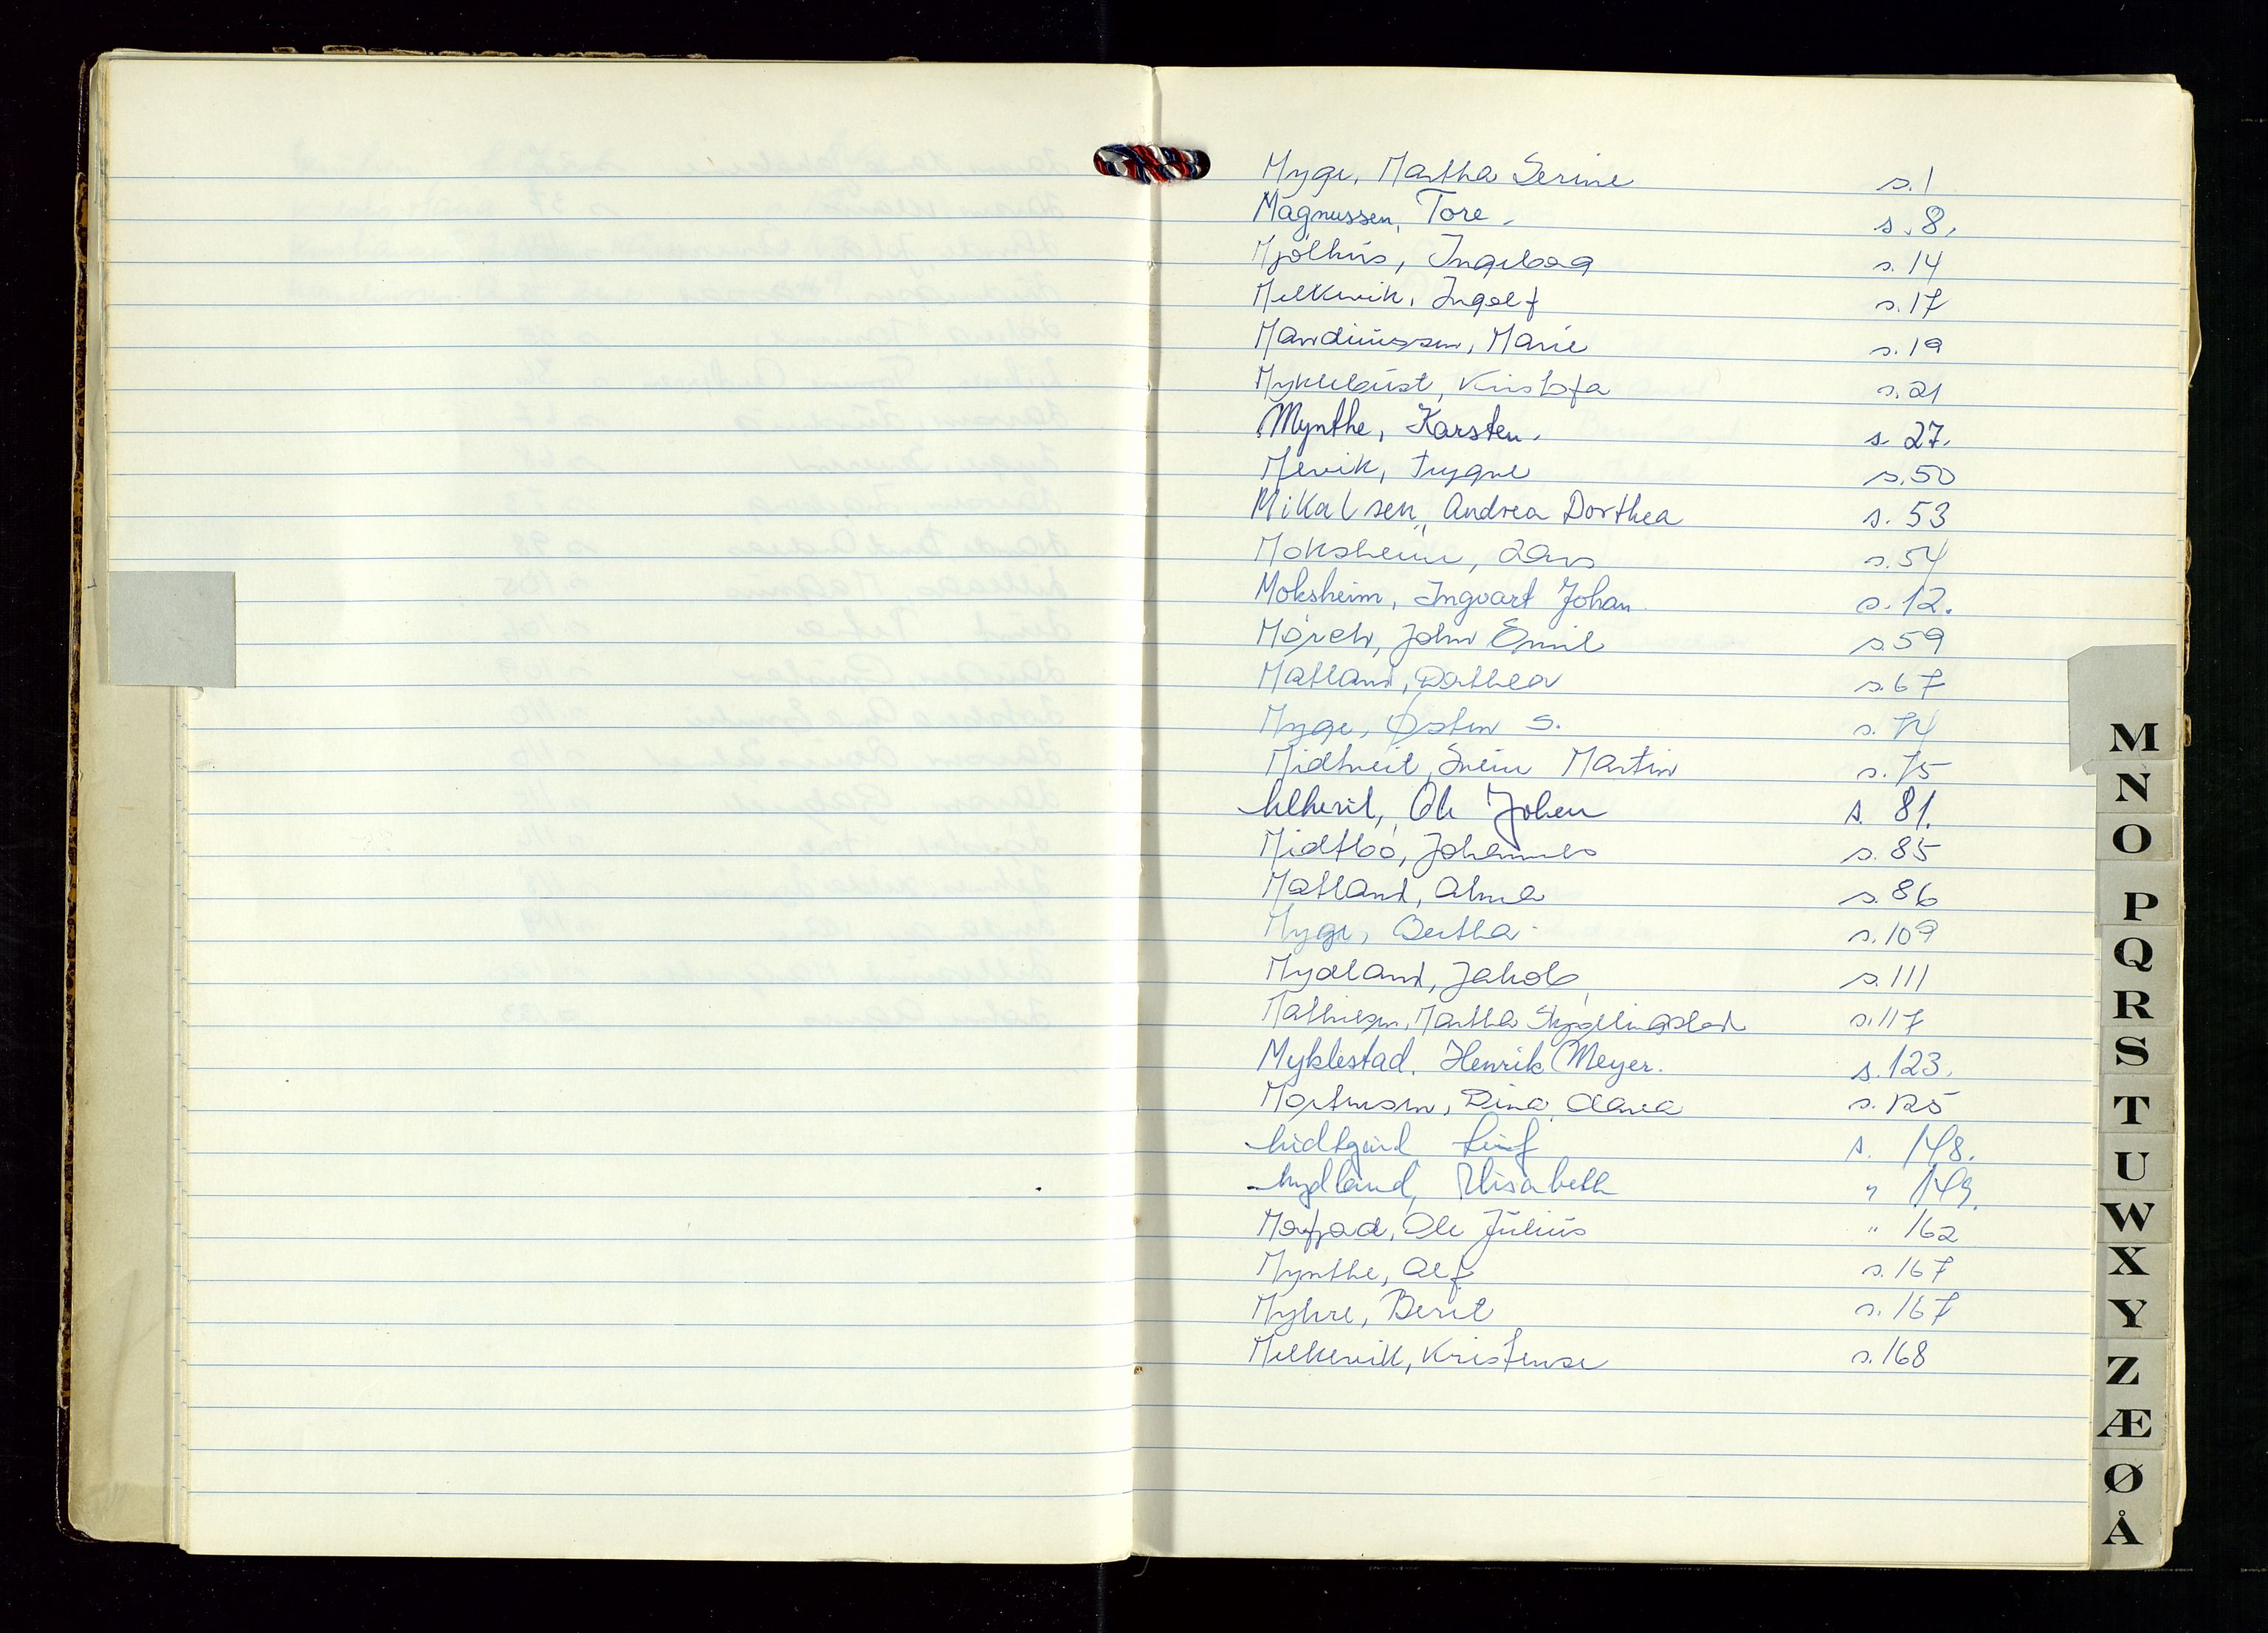 Myge, Martha Serine s. 1
Magnussen, Tore. s. 8.
Mjølhus, Ingeborg s. 14
Melkevik, Ingolf s. 17
Mardinussen, Marie s. 19
Myklebust, Kristofa s. 21
Mynthe, Karsten. s. 27.
Mevik, Trygve s. 50
Mikalsen, Andrea Dorthea s. 53
Moksheim, Lars s. 54
Moksheim, Ingvart Johan s. 12.
Mørch, John Emil s. 59
Matland, Dorthea s. 67
Myge, Østen S. s. 74
Midtveit, Svein Martin s. 75
Ole Johan s. 81.
Midtbø, Johannes s. 85
Matland, Alma s. 86
Myge, Bertha s. 109
Mydland, Jakob s. 111
Mathiesen, Martha Skjølingstad s. 117
Myklestad, Henrik Meyer. s. 123.
Mortensen, Dina Olava s. 125
Midtgård s. 148.
Mydland, Elisabeth " 149.
Ole Julius " 162
Mynthe, Alf s. 167
Myhre, Berit s. 167
Melkevik, Kristense s. 168
M
N
O
P
Q
R
S
T
U
W
X
Y
Z
Æ
Ø
Å